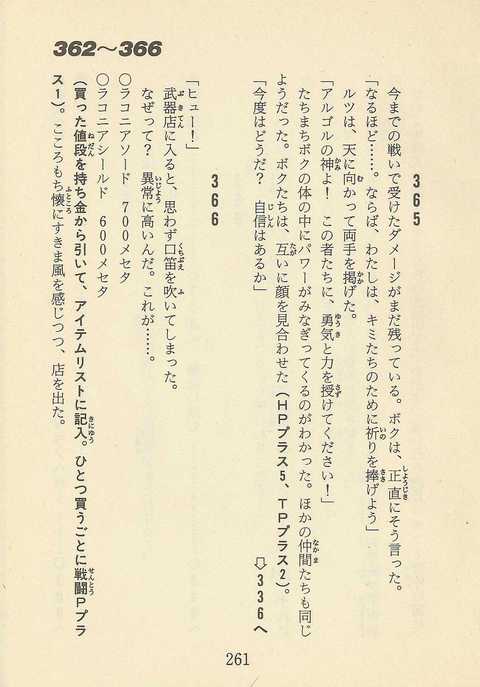 362〜366
365
今までの戦いで受けたダメージがまだ残っている。ボクは、正直にそう言った。
「なるほど……。ならば、わたしは、キミたちのために祈りを捧げよう」
ルツは、天に向かって両手を掲げた。
「アルゴルの神よ！　この者たちに、勇気と力を授けてください！」
たちまちボクの体の中にパワーがみなぎってくるのがわかった。ほかの仲間たちも同じ
ようだった。ボクたちは、互いに顔を見合わせた（HPプラス5、TPプラス2）。
「今度はどうだ？　自信はあるか」
⇨336へ
366
「ヒュー！」
武器店に入ると、思わず口笛を吹いてしまった。
なぜって？　異常に高いんだ。これが……。
○ラコニアソード　700メセタ
○ラコニアシールド　600メセタ
（買った値段を持ち金から引いて、アイテムリストに記入。ひとつ買うごとに戦闘Pプラ
ス1）。こころもち懐にすきま風を感じつつ、店を出た。
261